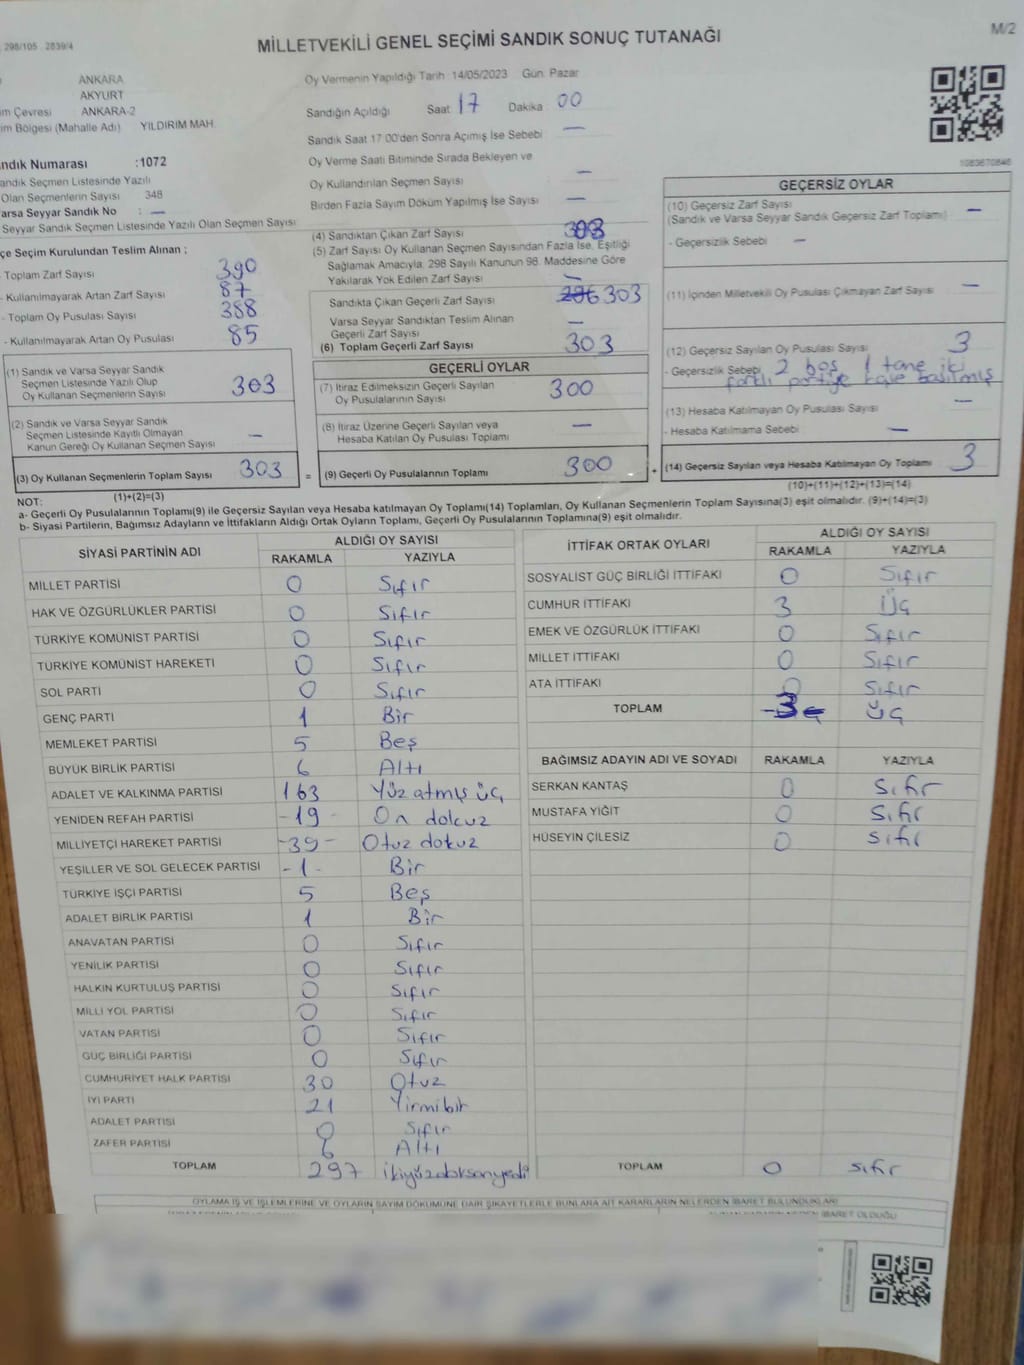 298/105 2839/4
M/2
MİLLETVEKİLİ GENEL SEÇİMİ SANDIK SONUÇ TUTANAĞI
ANKARA
AKYURT
im Çevresi ANKARA-2
im Bölgesi (Mahalle Adı) YILDIRIM MAH.
ndık Numarası :1072
andık Seçmen Listesinde Yazılı
Olan Seçmenlerin Sayısı 348
arsa Seyyar Sandık No : —
Seyyar Sandık Seçmen Listesinde Yazılı Olan Seçmen Sayısı
çe Seçim Kurulundan Teslim Alınan ;
- Toplam Zarf Sayısı 390
- Kullanılmayarak Artan Zarf Sayısı 87
- Toplam Oy Pusulası Sayısı 388
- Kullanılmayarak Artan Oy Pusulası 85
(1) Sandık ve Varsa Seyyar Sandık
Seçmen Listesinde Yazılı Olup
Oy Kullanan Seçmenlerin Sayısı 303
(2) Sandık ve Varsa Seyyar Sandık
Seçmen Listesinde Kayıtlı Olmayan
Kanun Gereği Oy Kullanan Seçmen Sayısı —
(3) Oy Kullanan Seçmenlerin Toplam Sayısı 303 =
(1)+(2)=(3)
Oy Vermenin Yapıldığı Tarih :14/05/2023 Gün: Pazar
Sandığın Açıldığı Saat 17 Dakika 00
Sandık Saat 17:00'den Sonra Açımış İse Sebebi —
Oy Verme Saati Bitiminde Sırada Bekleyen ve
Oy Kullandırılan Seçmen Sayısı —
Birden Fazla Sayım Döküm Yapılmış İse Sayısı —
(4) Sandıktan Çıkan Zarf Sayısı 303
(5) Zarf Sayısı Oy Kullanan Seçmen Sayısından Fazla İse, Eşitliği
Sağlamak Amacıyla, 298 Sayılı Kanunun 98. Maddesine Göre
Yakılarak Yok Edilen Zarf Sayısı —
Sandıkta Çıkan Geçerli Zarf Sayısı 296 303
Varsa Seyyar Sandıktan Teslim Alınan
Geçerli Zarf Sayısı —
(6) Toplam Geçerli Zarf Sayısı 303
GEÇERLİ OYLAR
(7) İtiraz Edilmeksizin Geçerli Sayılan
Oy Pusulalarının Sayısı 300
(8) İtiraz Üzerine Geçerli Sayılan veya
Hesaba Katılan Oy Pusulası Toplamı —
(9) Geçerli Oy Pusulalarının Toplamı 300 +
1083670846
GEÇERSİZ OYLAR
(10) Geçersiz Zarf Sayısı
(Sandık ve Varsa Seyyar Sandık Geçersiz Zarf Toplamı) —
- Geçersizlik Sebebi —
(11) İçinden Milletvekili Oy Pusulası Çıkmayan Zarf Sayısı —
(12) Geçersiz Sayılan Oy Pusulası Sayısı 3
- Geçersizlik Sebebi 2 boş 1 tane iki
farklı partiye kaşe basılmış
(13) Hesaba Katılmayan Oy Pusulası Sayısı —
- Hesaba Katılmama Sebebi —
(14) Geçersiz Sayılan veya Hesaba Katılmayan Oy Toplamı 3
(10)+(11)+(12)+(13)=(14)
NOT:
a- Geçerli Oy Pusulalarının Toplamı(9) ile Geçersiz Sayılan veya Hesaba katılmayan Oy Toplamı(14) Toplamları, Oy Kullanan Seçmenlerin Toplam Sayısına(3) eşit olmalıdır. (9)+(14)=(3)
b- Siyasi Partilerin, Bağımsız Adayların ve İttifakların Aldığı Ortak Oyların Toplamı, Geçerli Oy Pusulalarının Toplamına(9) eşit olmalıdır.
SİYASİ PARTİNİN ADI ALDIĞI OY SAYISI
RAKAMLA YAZIYLA
MİLLET PARTİSİ 0 Sıfır
HAK VE ÖZGÜRLÜKLER PARTİSİ 0 Sıfır
TÜRKİYE KOMÜNİST PARTİSİ 0 Sıfır
TÜRKİYE KOMÜNİST HAREKETİ 0 Sıfır
SOL PARTİ 0 Sıfır
GENÇ PARTİ 1 Bir
MEMLEKET PARTİSİ 5 Beş
BÜYÜK BİRLİK PARTİSİ 6 Altı
ADALET VE KALKINMA PARTİSİ 163 Yüz atmış üç
YENİDEN REFAH PARTİSİ -19- On dokuz
MİLLİYETÇİ HAREKET PARTİSİ -39- Otuz dokuz
YEŞİLLER VE SOL GELECEK PARTİSİ -1- Bir
TÜRKİYE İŞÇİ PARTİSİ 5 Beş
ADALET BİRLİK PARTİSİ 1 Bir
ANAVATAN PARTİSİ 0 Sıfır
YENİLİK PARTİSİ 0 Sıfır
HALKIN KURTULUŞ PARTİSİ 0 Sıfır
MİLLİ YOL PARTİSİ 0 Sıfır
VATAN PARTİSİ 0 Sıfır
GÜÇ BİRLİĞİ PARTİSİ 0 Sıfır
CUMHURİYET HALK PARTİSİ 30 Otuz
İYİ PARTİ 21 Yirmibir
ADALET PARTİSİ 0 Sıfır
ZAFER PARTİSİ 6 Altı
TOPLAM 297
İTTİFAK ORTAK OYLARI ALDIĞI OY SAYISI
RAKAMLA YAZIYLA
SOSYALİST GÜÇ BİRLİĞİ İTTİFAKI 0 Sıfır
CUMHUR İTTİFAKI 3 Üç
EMEK VE ÖZGÜRLÜK İTTİFAKI 0 Sıfır
MİLLET İTTİFAKI 0 Sıfır
ATA İTTİFAKI 0 Sıfır
TOPLAM 3 Üç
BAĞIMSIZ ADAYIN ADI VE SOYADI RAKAMLA YAZIYLA
SERKAN KANTAŞ 0 Sıfır
MUSTAFA YİĞİT 0 Sıfır
HÜSEYİN ÇİLESİZ 0 Sıfır
TOPLAM 0 Sıfır
OYLAMA İŞ VE İŞLEMLERİNE VE OYLARIN SAYIM DÖKÜMÜNE DAİR ŞİKAYETLERLE BUNLARA AİT KARARLARIN NELERDEN İBARET BULUNDUKLARI